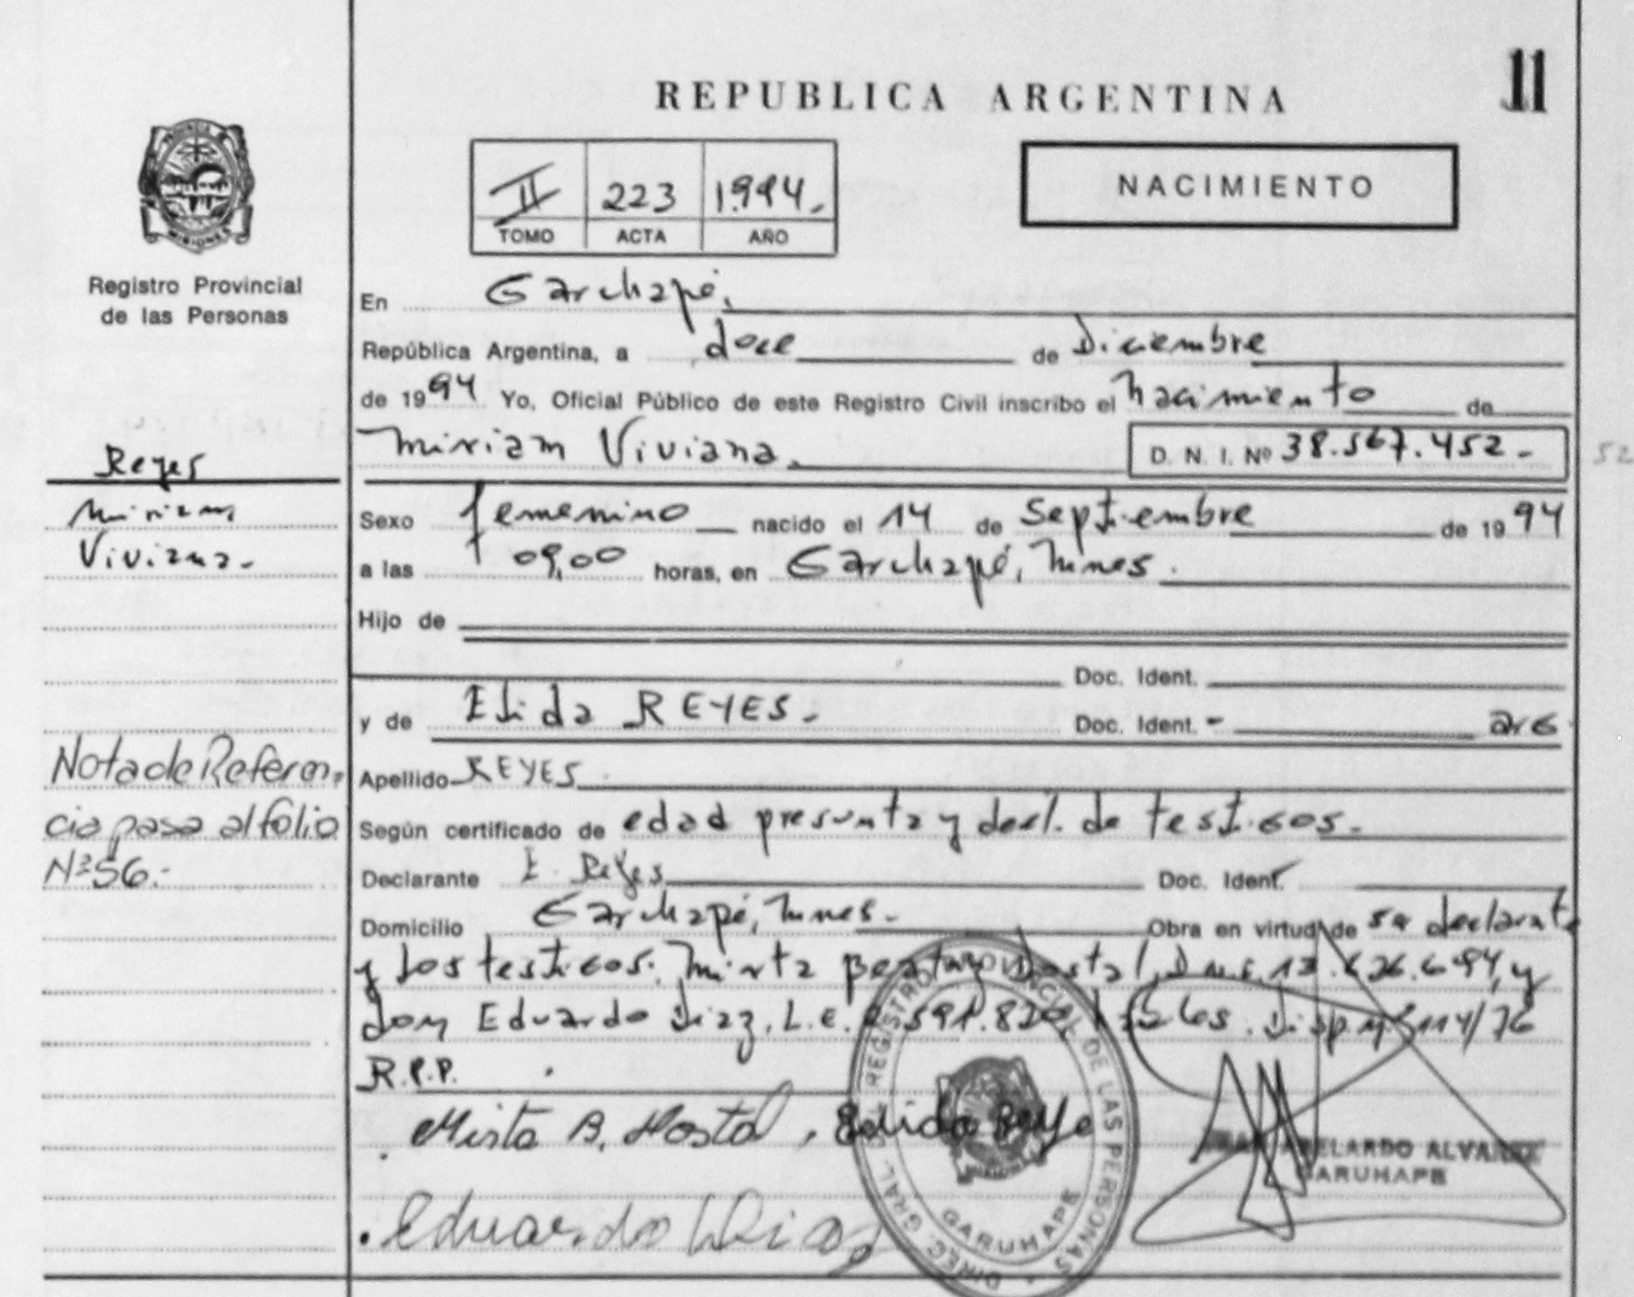 11
REPUBLICA ARGENTINA
NACIMIENTO
II 223 1994.
TOMO ACTA AÑO
MISIONES
Registro Provincial
de las Personas
En Garuhapé,
República Argentina, a doce de Diciembre
de 1994 Yo, Oficial Público de este Registro Civil inscribo el nacimiento de
Miriam Viviana. D. N. I. Nº 38.567.452.-
Reyes
Miriam
Viviana.-
Sexo femenino nacido el 14 de Septiembre de 1994
a las 09,00 horas, en Garuhapé, Mnes.
Hijo de
Doc. Ident.
y de Elida REYES.- Doc. Ident. - arg
Apellido REYES
Según certificado de edad presunta y decl. de testigos.-
Declarante E. Reyes Doc. Ident.
Domicilio Garuhapé, Mnes.- Obra en virtud de su declarat.
Nota de Referen-
cia pasa al folio
Nº 56.-
y los testigos: Mirta Dostal, D.N.I. 13.626.694, y
don Eduardo Diaz, L.E. 591.820 Disp. Nº 114/76
R.P.P.
Mirta B. Dostal, Elida Reye
Eduardo Diaz
DIREC. GRAL. REGISTRO PROVINCIAL DE LAS PERSONAS
GARUHAPE
ABELARDO ALVAREZ
GARUHAPE